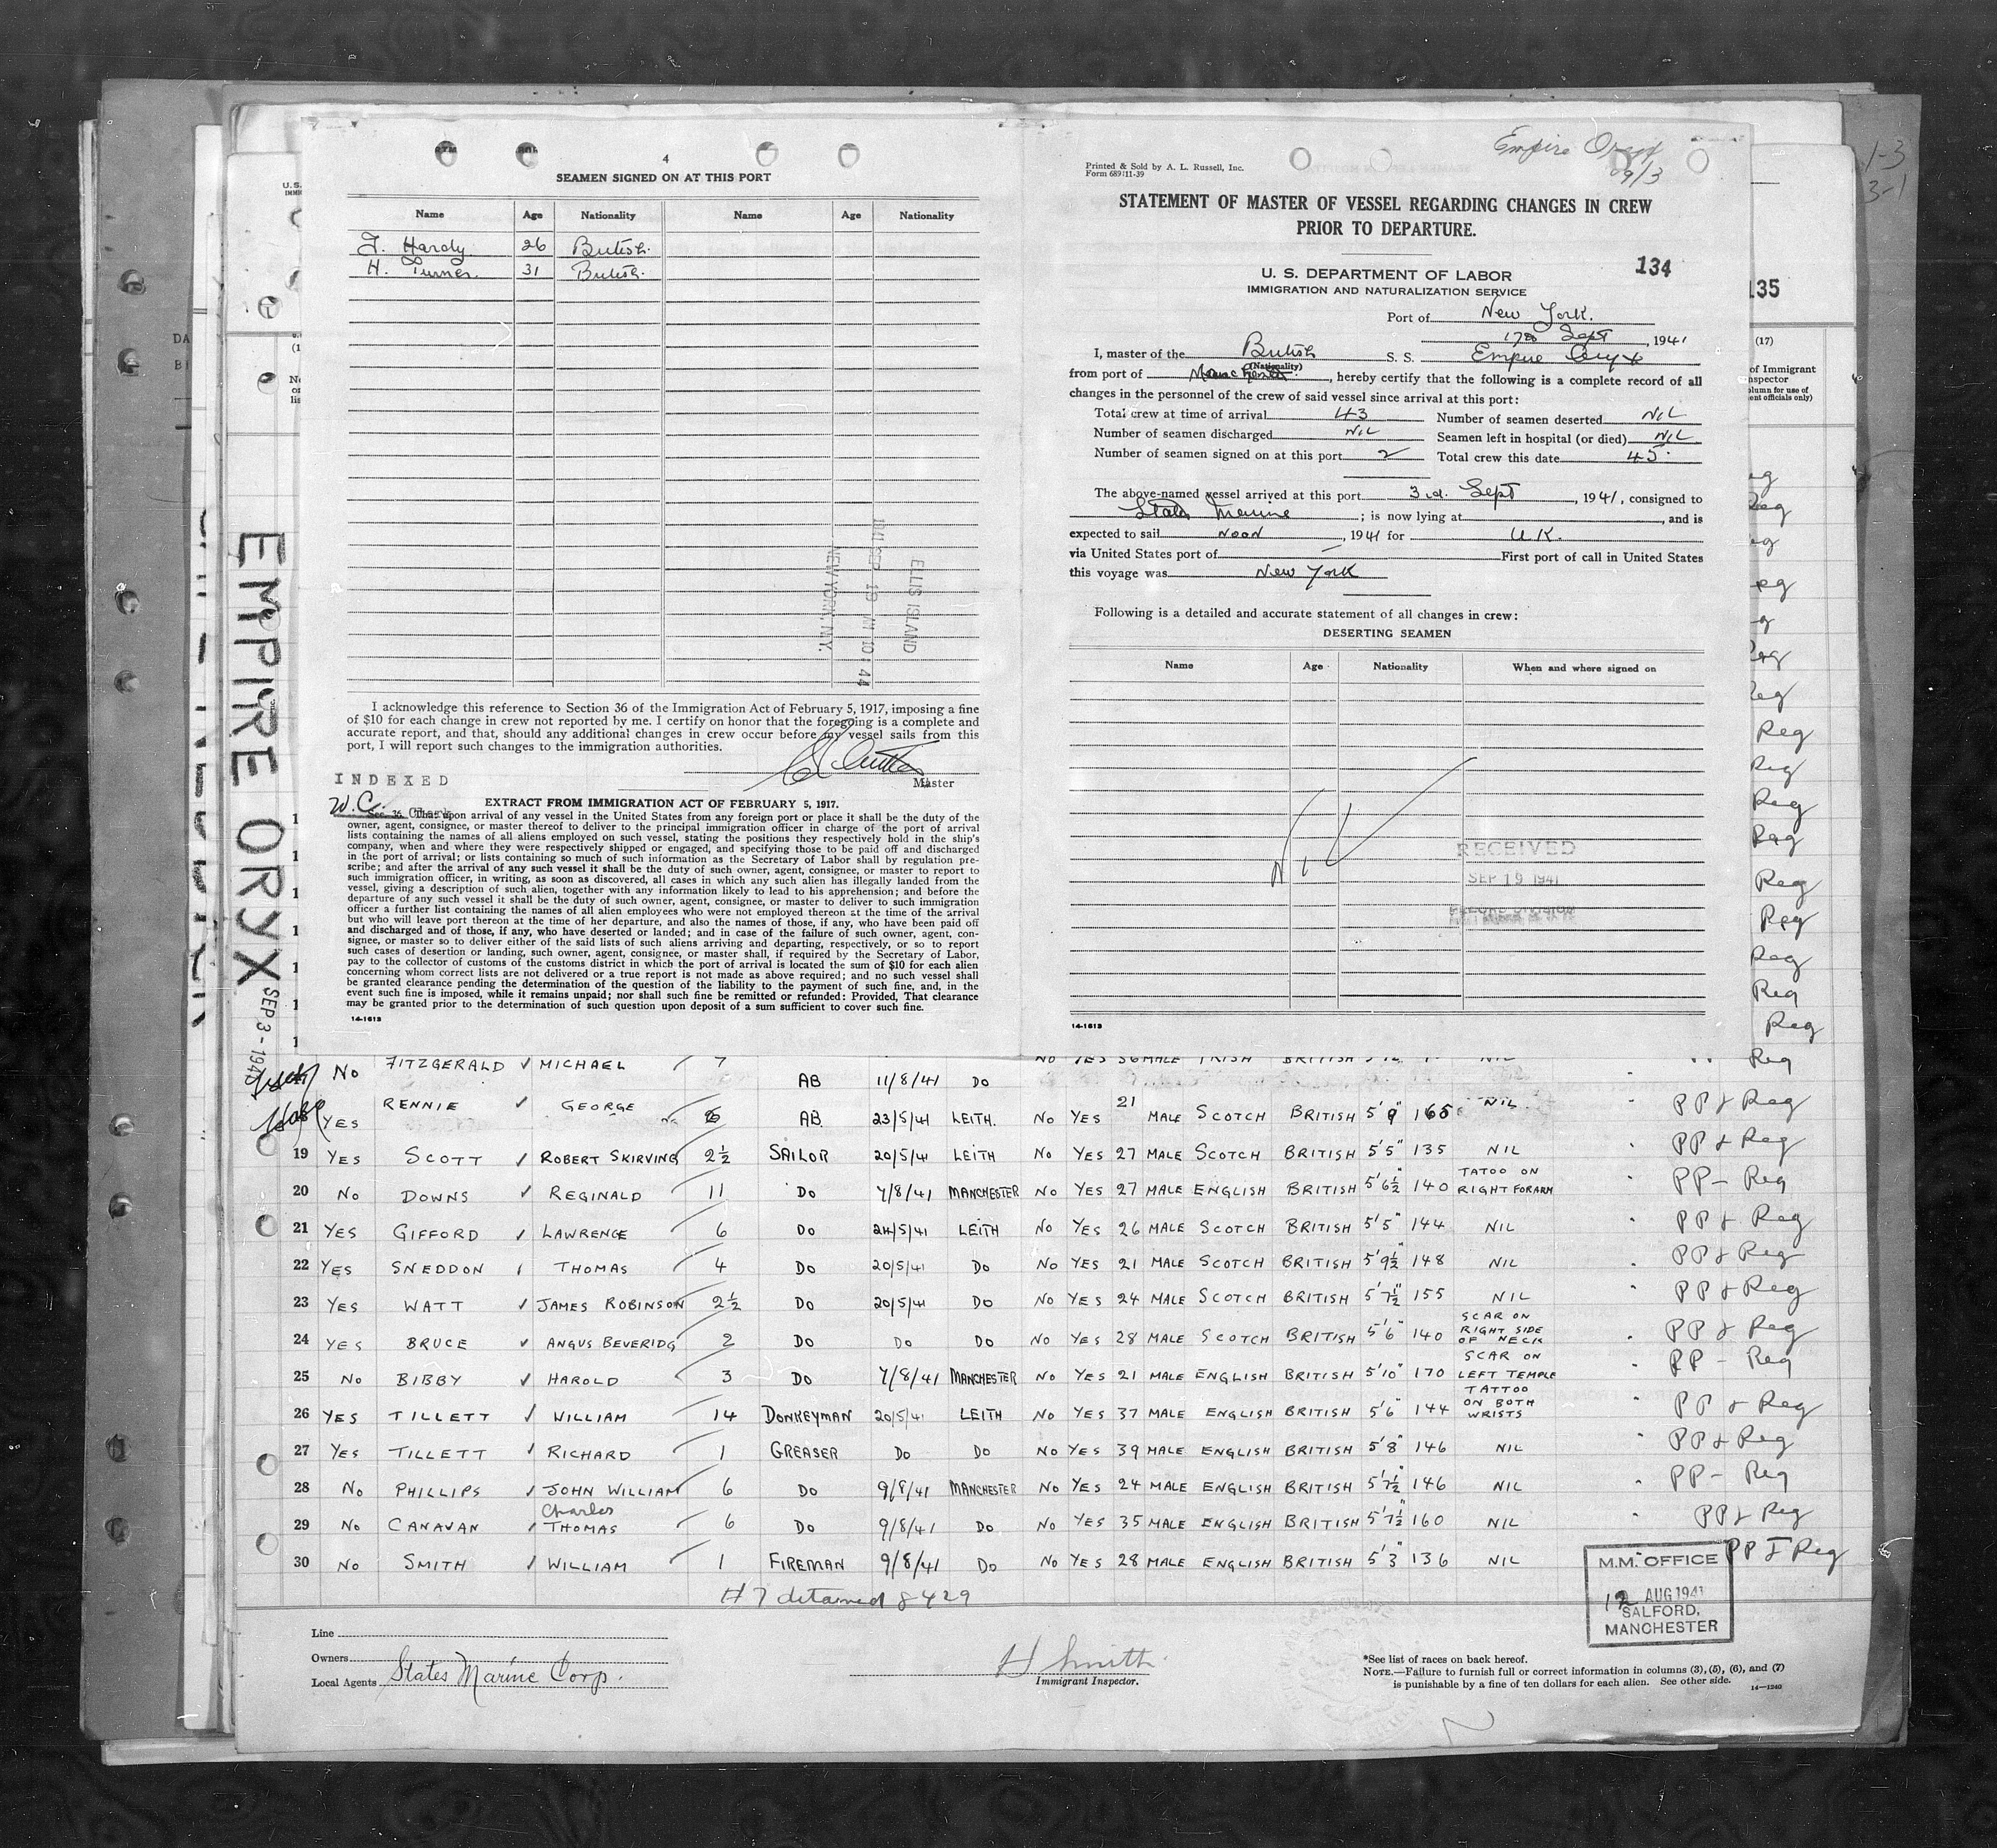 4
SEAMEN SIGNED ON AT THIS PORT
Name Age Nationality Name Age Nationality
Hardy 26 British.
H. Turner. 31 British.
ELLIS ISLAND
NEW YORK, N.Y.
I acknowledge this reference to Section 36 of the Immigration Act of February 5, 1917, imposing a fine
of $10 for each change in crew not reported by me. I certify on honor that the foregoing is a complete and
accurate report, and that, should any additional changes in crew occur before my vessel sails from this
port, I will report such changes to the immigration authorities.
Master
INDEXED
W.C.
EXTRACT FROM IMMIGRATION ACT OF FEBRUARY 5, 1917.
Sec. 36. That upon arrival of any vessel in the United States from any foreign port or place it shall be the duty of the
owner, agent, consignee, or master thereof to deliver to the principal immigration officer in charge of the port of arrival
lists containing the names of all aliens employed on such vessel, stating the positions they respectively hold in the ship's
company, when and where they were respectively shipped or engaged, and specifying those to be paid off and discharged
in the port of arrival; or lists containing so much of such information as the Secretary of Labor shall by regulation pre-
scribe; and after the arrival of any such vessel it shall be the duty of such owner, agent, consignee, or master to report to
such immigration officer, in writing, as soon as discovered, all cases in which any such alien has illegally landed from the
vessel, giving a description of such alien, together with any information likely to lead to his apprehension; and before the
departure of any such vessel it shall be the duty of such owner, agent, consignee, or master to deliver to such immigration
officer a further list containing the names of all alien employees who were not employed thereon at the time of the arrival
but who will leave port thereon at the time of her departure, and also the names of those, if any, who have been paid off
and discharged and of those, if any, who have deserted or landed; and in case of the failure of such owner, agent, con-
signee, or master so to deliver either of the said lists of such aliens arriving and departing, respectively, or so to report
such cases of desertion or landing, such owner, agent, consignee, or master shall, if required by the Secretary of Labor,
pay to the collector of customs of the customs district in which the port of arrival is located the sum of $10 for each alien
concerning whom correct lists are not delivered or a true report is not made as above required; and no such vessel shall
be granted clearance pending the determination of the question of the liability to the payment of such fine, and, in the
event such fine is imposed, while it remains unpaid; nor shall such fine be remitted or refunded: Provided, That clearance
may be granted prior to the determination of such question upon deposit of a sum sufficient to cover such fine.
14-1613
Empire Oryx
9/3
Printed & Sold by A. L. Russell, Inc.
Form 689 11-39
STATEMENT OF MASTER OF VESSEL REGARDING CHANGES IN CREW
PRIOR TO DEPARTURE.
134
U. S. DEPARTMENT OF LABOR
IMMIGRATION AND NATURALIZATION SERVICE
Port of New York.
17th Sept, 1941
I, master of the British S. S. Empire Oryx
(Nationality)
from port of Manchester, hereby certify that the following is a complete record of all
changes in the personnel of the crew of said vessel since arrival at this port:
Total crew at time of arrival 43 Number of seamen deserted NIL
Number of seamen discharged NIL Seamen left in hospital (or died) NIL
Number of seamen signed on at this port 2 Total crew this date 45
The above-named vessel arrived at this port 3rd. Sept, 1941, consigned to
States Marine; is now lying at , and is
expected to sail Noon, 1941 for U K.
via United States port of — First port of call in United States
this voyage was New York
Following is a detailed and accurate statement of all changes in crew:
DESERTING SEAMEN
Name Age Nationality When and where signed on
Nil
RECEIVED
SEP 19 1941
RECORD DIVISION
14-1613
135
(17)
1-3
3-1
EMPIRE ORYX
SEP 3 - 1941
No FITZGERALD ✓ MICHAEL 7 AB 11/8/41 DO NO YES 36 MALE IRISH BRITISH NIL Reg
YES RENNIE ✓ GEORGE 6 AB 23/5/41 LEITH. No YES 21 MALE SCOTCH BRITISH 5'9" 165 NIL. PP & Reg
19 YES SCOTT ✓ ROBERT SKIRVING 2½ SAILOR 20/5/41 LEITH No YES 27 MALE SCOTCH BRITISH 5'5" 135 NIL PP & Reg
20 No DOWNS ✓ REGINALD 11 DO 7/8/41 MANCHESTER No YES 27 MALE ENGLISH BRITISH 5'6½" 140 TATOO ON RIGHT FORARM PP - Reg
21 YES GIFFORD ✓ LAWRENCE 6 DO 24/5/41 LEITH No YES 26 MALE SCOTCH BRITISH 5'5" 144 NIL PP & Reg
22 YES SNEDDON THOMAS 4 DO 20/5/41 DO No YES 21 MALE SCOTCH BRITISH 5'9½" 148 NIL PP & Reg
23 YES WATT ✓ JAMES ROBINSON 2½ DO 20/5/41 DO No YES 24 MALE SCOTCH BRITISH 5'7½" 155 NIL PP & Reg
24 YES BRUCE ✓ ANGUS BEVERIDG 2 DO DO DO No YES 28 MALE SCOTCH BRITISH 5'6" 140 SCAR ON RIGHT SIDE OF NECK PP & Reg
25 No BIBBY ✓ HAROLD 3 DO 7/8/41 MANCHESTER No YES 21 MALE ENGLISH BRITISH 5'10" 170 SCAR ON LEFT TEMPLE PP - Reg
26 YES TILLETT ✓ WILLIAM 14 DONKEYMAN 20/5/41 LEITH No YES 37 MALE ENGLISH BRITISH 5'6" 144 TATTOO ON BOTH WRISTS PP & Reg
27 YES TILLETT ✓ RICHARD 1 GREASER DO DO No YES 39 MALE ENGLISH BRITISH 5'8" 146 NIL PP & Reg
28 No PHILLIPS ✓ JOHN WILLIAM 6 DO 9/8/41 MANCHESTER No YES 24 MALE ENGLISH BRITISH 5'7½" 146 NIL PP - Reg
29 No CANAVAN ✓ Charles THOMAS 6 DO 9/8/41 DO No YES 35 MALE ENGLISH BRITISH 5'7½" 160 NIL PP & Reg
30 No SMITH ✓ WILLIAM 1 FIREMAN 9/8/41 DO No YES 28 MALE ENGLISH BRITISH 5'3" 136 NIL PP & Reg
# 7 detained 8429
M.M. OFFICE
12 AUG 1941
SALFORD,
MANCHESTER
Line
Owners
Local Agents States Marine Corp.
H Smith
Immigrant Inspector.
*See list of races on back hereof.
NOTE.—Failure to furnish full or correct information in columns (3), (5), (6), and (7)
is punishable by a fine of ten dollars for each alien. See other side.
14—1240